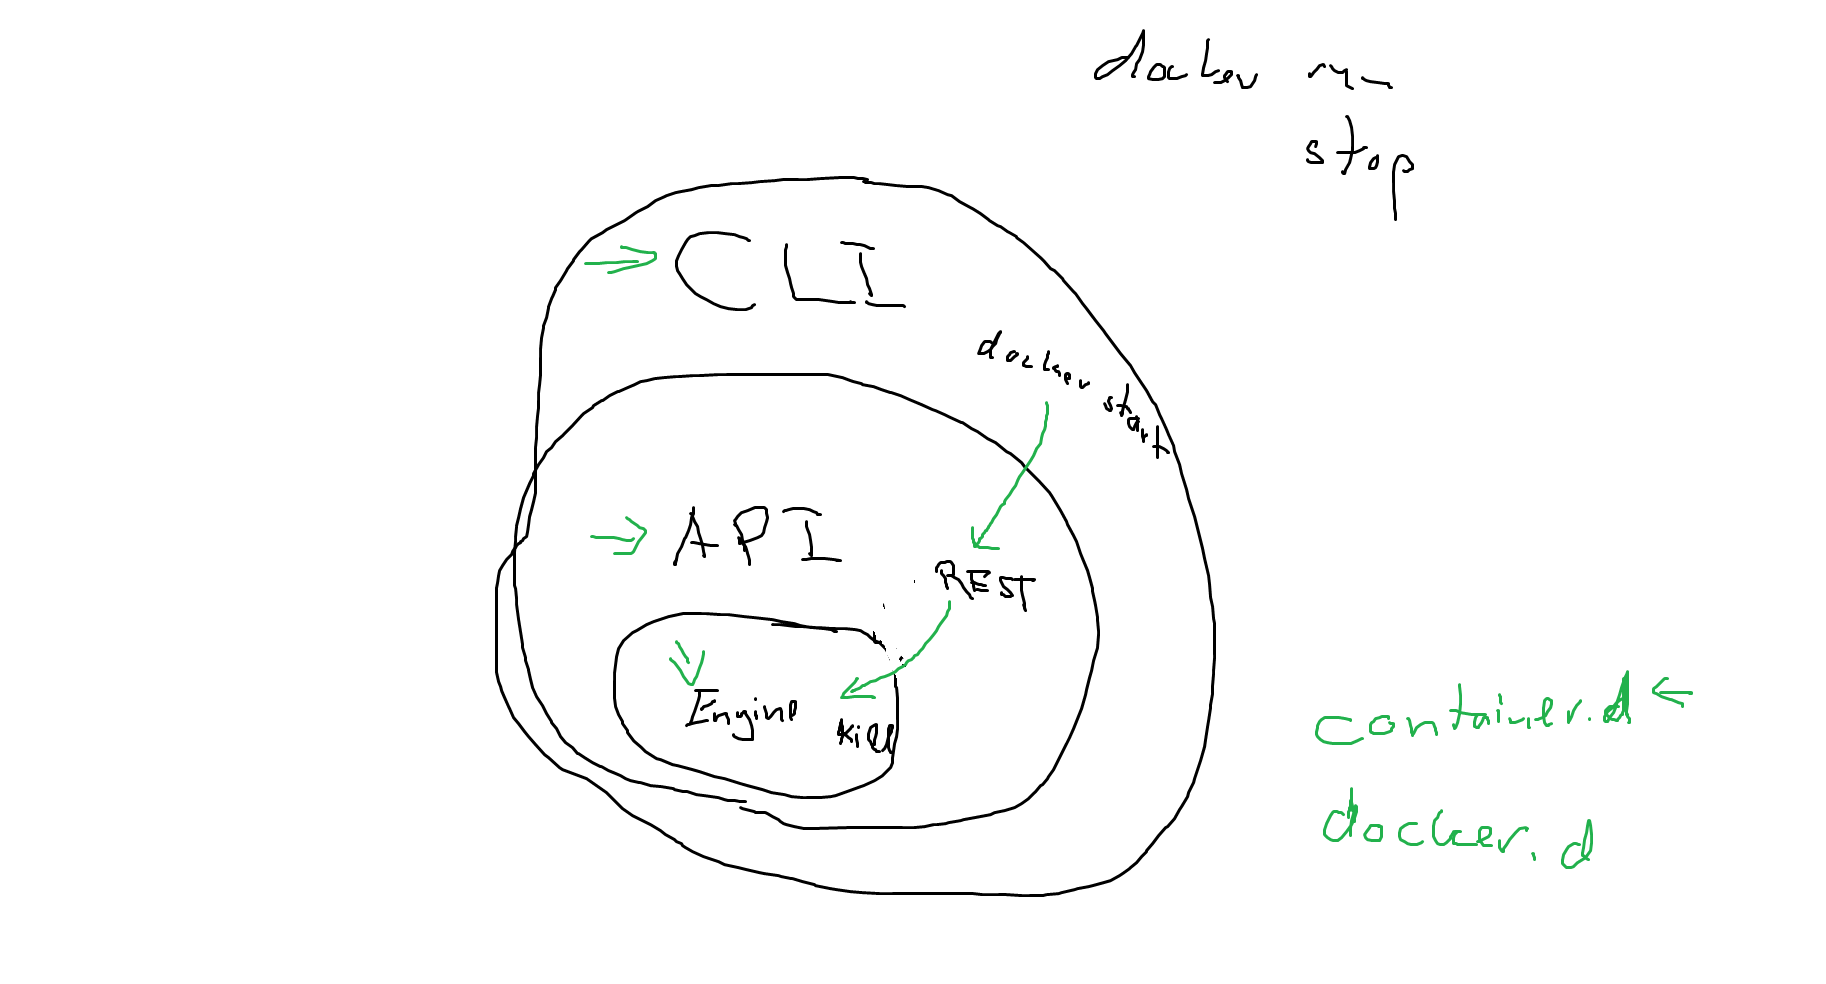 docker run
stop
CLI
docker start
API
REST
Engine
kill
container.d
docker.d